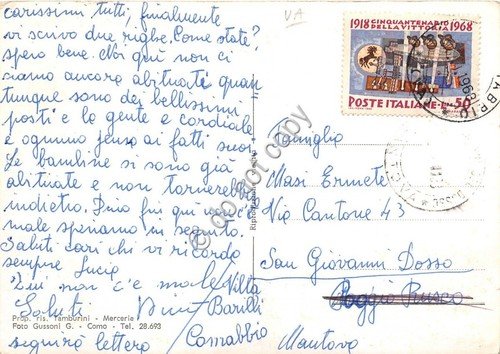 carissimi tutti, finalmente
vi scrivo due righe. Come state?
spero bene. Noi qui non ci
siamo ancora abituati quan
tunque sono dei bellissimi
posti e la gente e cordiale
e ognuno pensa ai fatti suoi.
Le bambine si sono già
abituate e non tornerebbero
indietro. Fino fui qui non c'è
male speriamo in seguito.
Saluti cari chi vi ricorda
sempre Lucia
Qui non c'e male Vilta
Saluti Barilli
Comabbio
seguirà lettera
Prop. ris. Tamburini - Mercerie
Foto Gussoni G. - Como - Tel. 28.693
VA
1918 CINQUANTENARIO 1968
DELLA VITTORIA
POSTE ITALIANE L. 50
Famiglia
Masi Ermete
Via Cantone 43
San Giovanni Dosso
Poggio Rusco
Mantova
do not copy